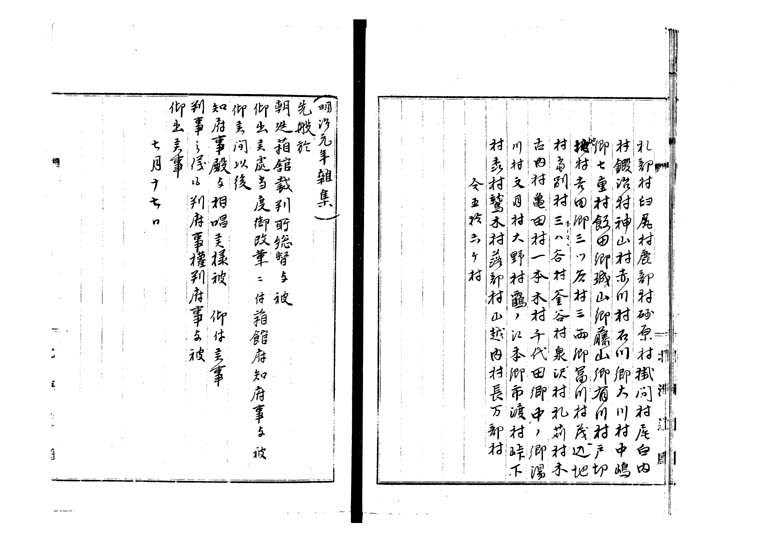 札部村臼尻村鹿部村砂原村掛間村尾白内
村鍛冶村神山村赤川村石川郷大川村中嶋
郷七重村飯田郷城山郷藤山郷有川村戸切
地村吉田郷三ツ石村三両郷富川村茂辺地
村当別村三ツ谷村釜谷村泉沢村札苅村木
古内村亀田村一本木村千代田郷中ノ郷湯
川村文月村大野村鷲ノ江本郷市渡村峠下
村森村鷲木村落部村山越内村長万部村
合五拾六ケ村
(明治元年雑集)
先般於
朝廷箱館裁判所総督与被
仰出候処当度御改革ニ付箱館府知府事与被
仰出候間以後
知府事殿与相唱候様被 仰付候事
判事之儀ハ判府事権判府事与被
仰出候事
七月十七日